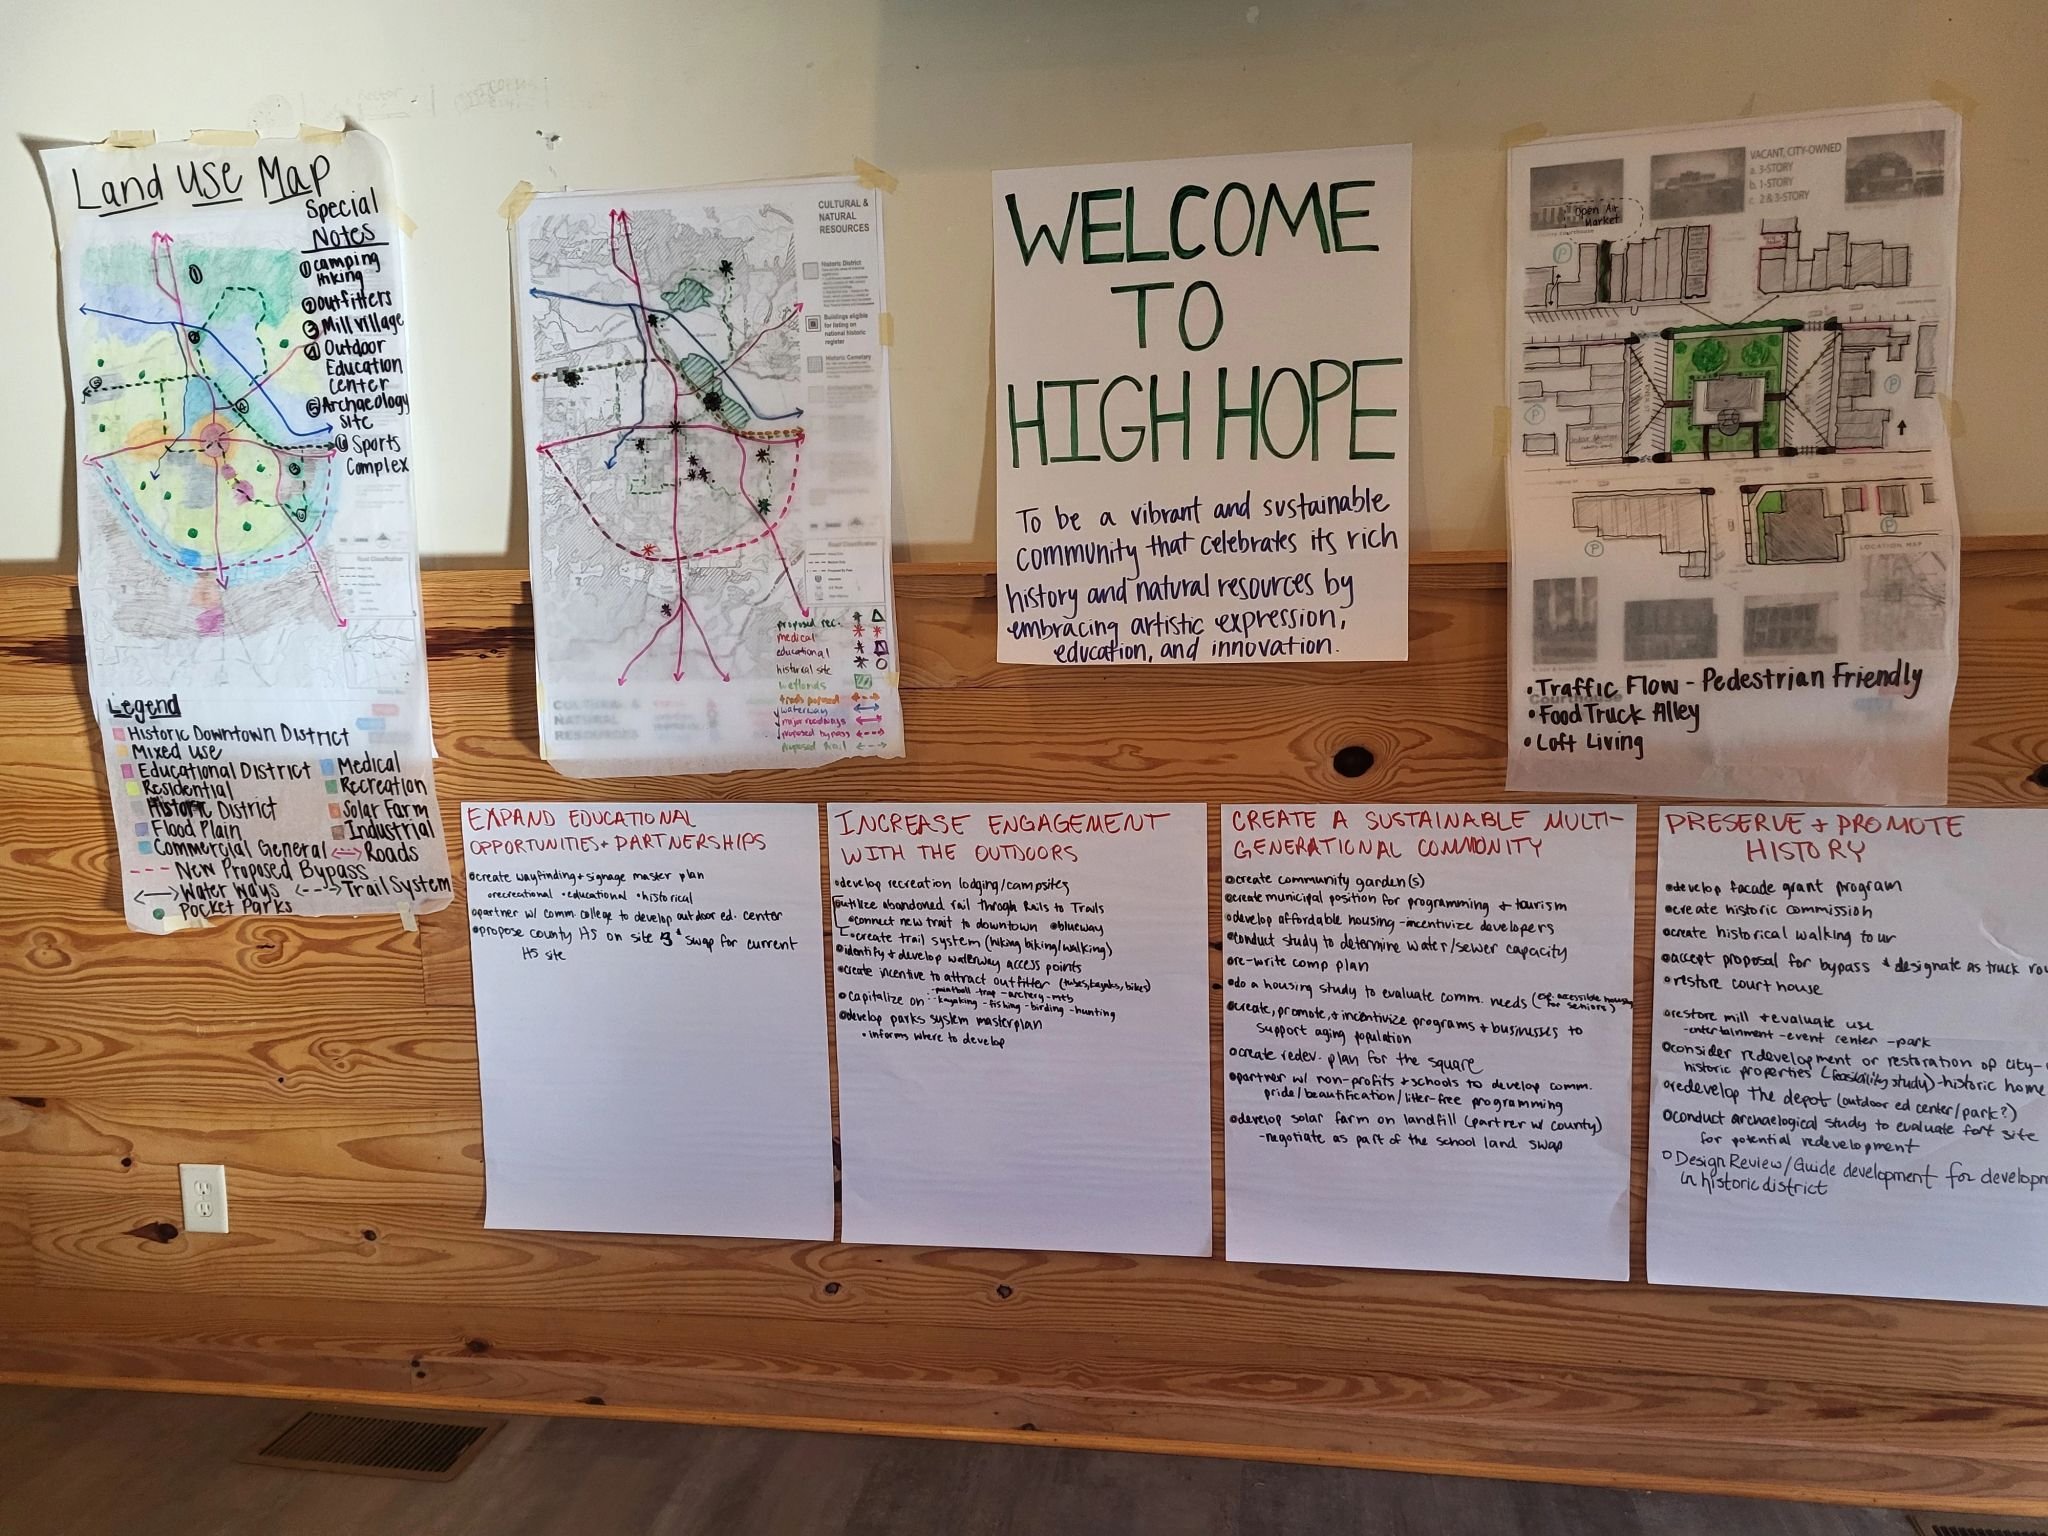 Land Use Map
Special
Notes
① camping
hiking
② outfitters
③ Mill village
④ Outdoor
Education
center
⑤ Archaeology
site
⑥ Sports
Complex
Legend
Historic Downtown District
Mixed use
Educational District
Medical
Residential
Recreation
Historic District
Solar Farm
Flood Plain
Industrial
Commercial General
Roads
New Proposed Bypass
Water Ways
Trail System
Pocket Parks
CULTURAL &
NATURAL
RESOURCES
Historic District
Buildings eligible
for listing on
national historic
register
Historic Cemetary
Road Classification
proposed rec.
medical
educational
historical site
wetlands
waterway
major roadways
proposed bypass
proposed trail
CULTURAL &
NATURAL
RESOURCES
WELCOME
TO
HIGH HOPE
To be a vibrant and sustainable
community that celebrates its rich
history and natural resources by
embracing artistic expression,
education, and innovation.
VACANT, CITY-OWNED
a. 3-STORY
b. 1-STORY
c. 2 & 3-STORY
Open Air
Market
P
P
P
P
P
LOCATION MAP
• Traffic Flow - Pedestrian Friendly
• Food Truck Alley
• Loft Living
EXPAND EDUCATIONAL
OPPORTUNITIES + PARTNERSHIPS
• create wayfinding + signage master plan
• recreational • educational • historical
• partner w/ comm. college to develop outdoor ed. center
• propose county HS on site 3 + swap for current
HS site
INCREASE ENGAGEMENT
WITH THE OUTDOORS
• develop recreation lodging/campsites
• utilize abandoned rail through Rails to Trails
• connect new trail to downtown • blueway
• create trail system (hiking/biking/walking)
• identify + develop waterway access points
• create incentive to attract outfitter (tubes, kayaks, bikes)
• capitalize on: - paintball - trap - archery - mtb
- kayaking - fishing - birding - hunting
• develop parks system masterplan
• informs where to develop
CREATE A SUSTAINABLE MULTI-
GENERATIONAL COMMUNITY
• create community garden(s)
• create municipal position for programming + tourism
• develop affordable housing - incentivize developers
• conduct study to determine water/sewer capacity
• re-write comp plan
• do a housing study to evaluate comm. needs (esp. accessible housing
for seniors)
• create, promote, + incentivize programs + businesses to
support aging population
• create redev. plan for the square
• partner w/ non-profits + schools to develop comm.
pride/beautification/litter-free programming
• develop solar farm on landfill (partner w/ county)
- negotiate as part of the school land swap
PRESERVE + PROMOTE
HISTORY
• develop facade grant program
• create historic commission
• create historical walking tour
• accept proposal for bypass + designate as truck rou
• restore court house
• restore mill + evaluate use
- entertainment - event center - park
• consider redevelopment or restoration of city-
historic properties (feasibility study) - historic home
• redevelop the depot (outdoor ed center/park?)
• conduct archaelogical study to evaluate fort site
for potential redevelopment
• Design Review/Guide development for developm
in historic district